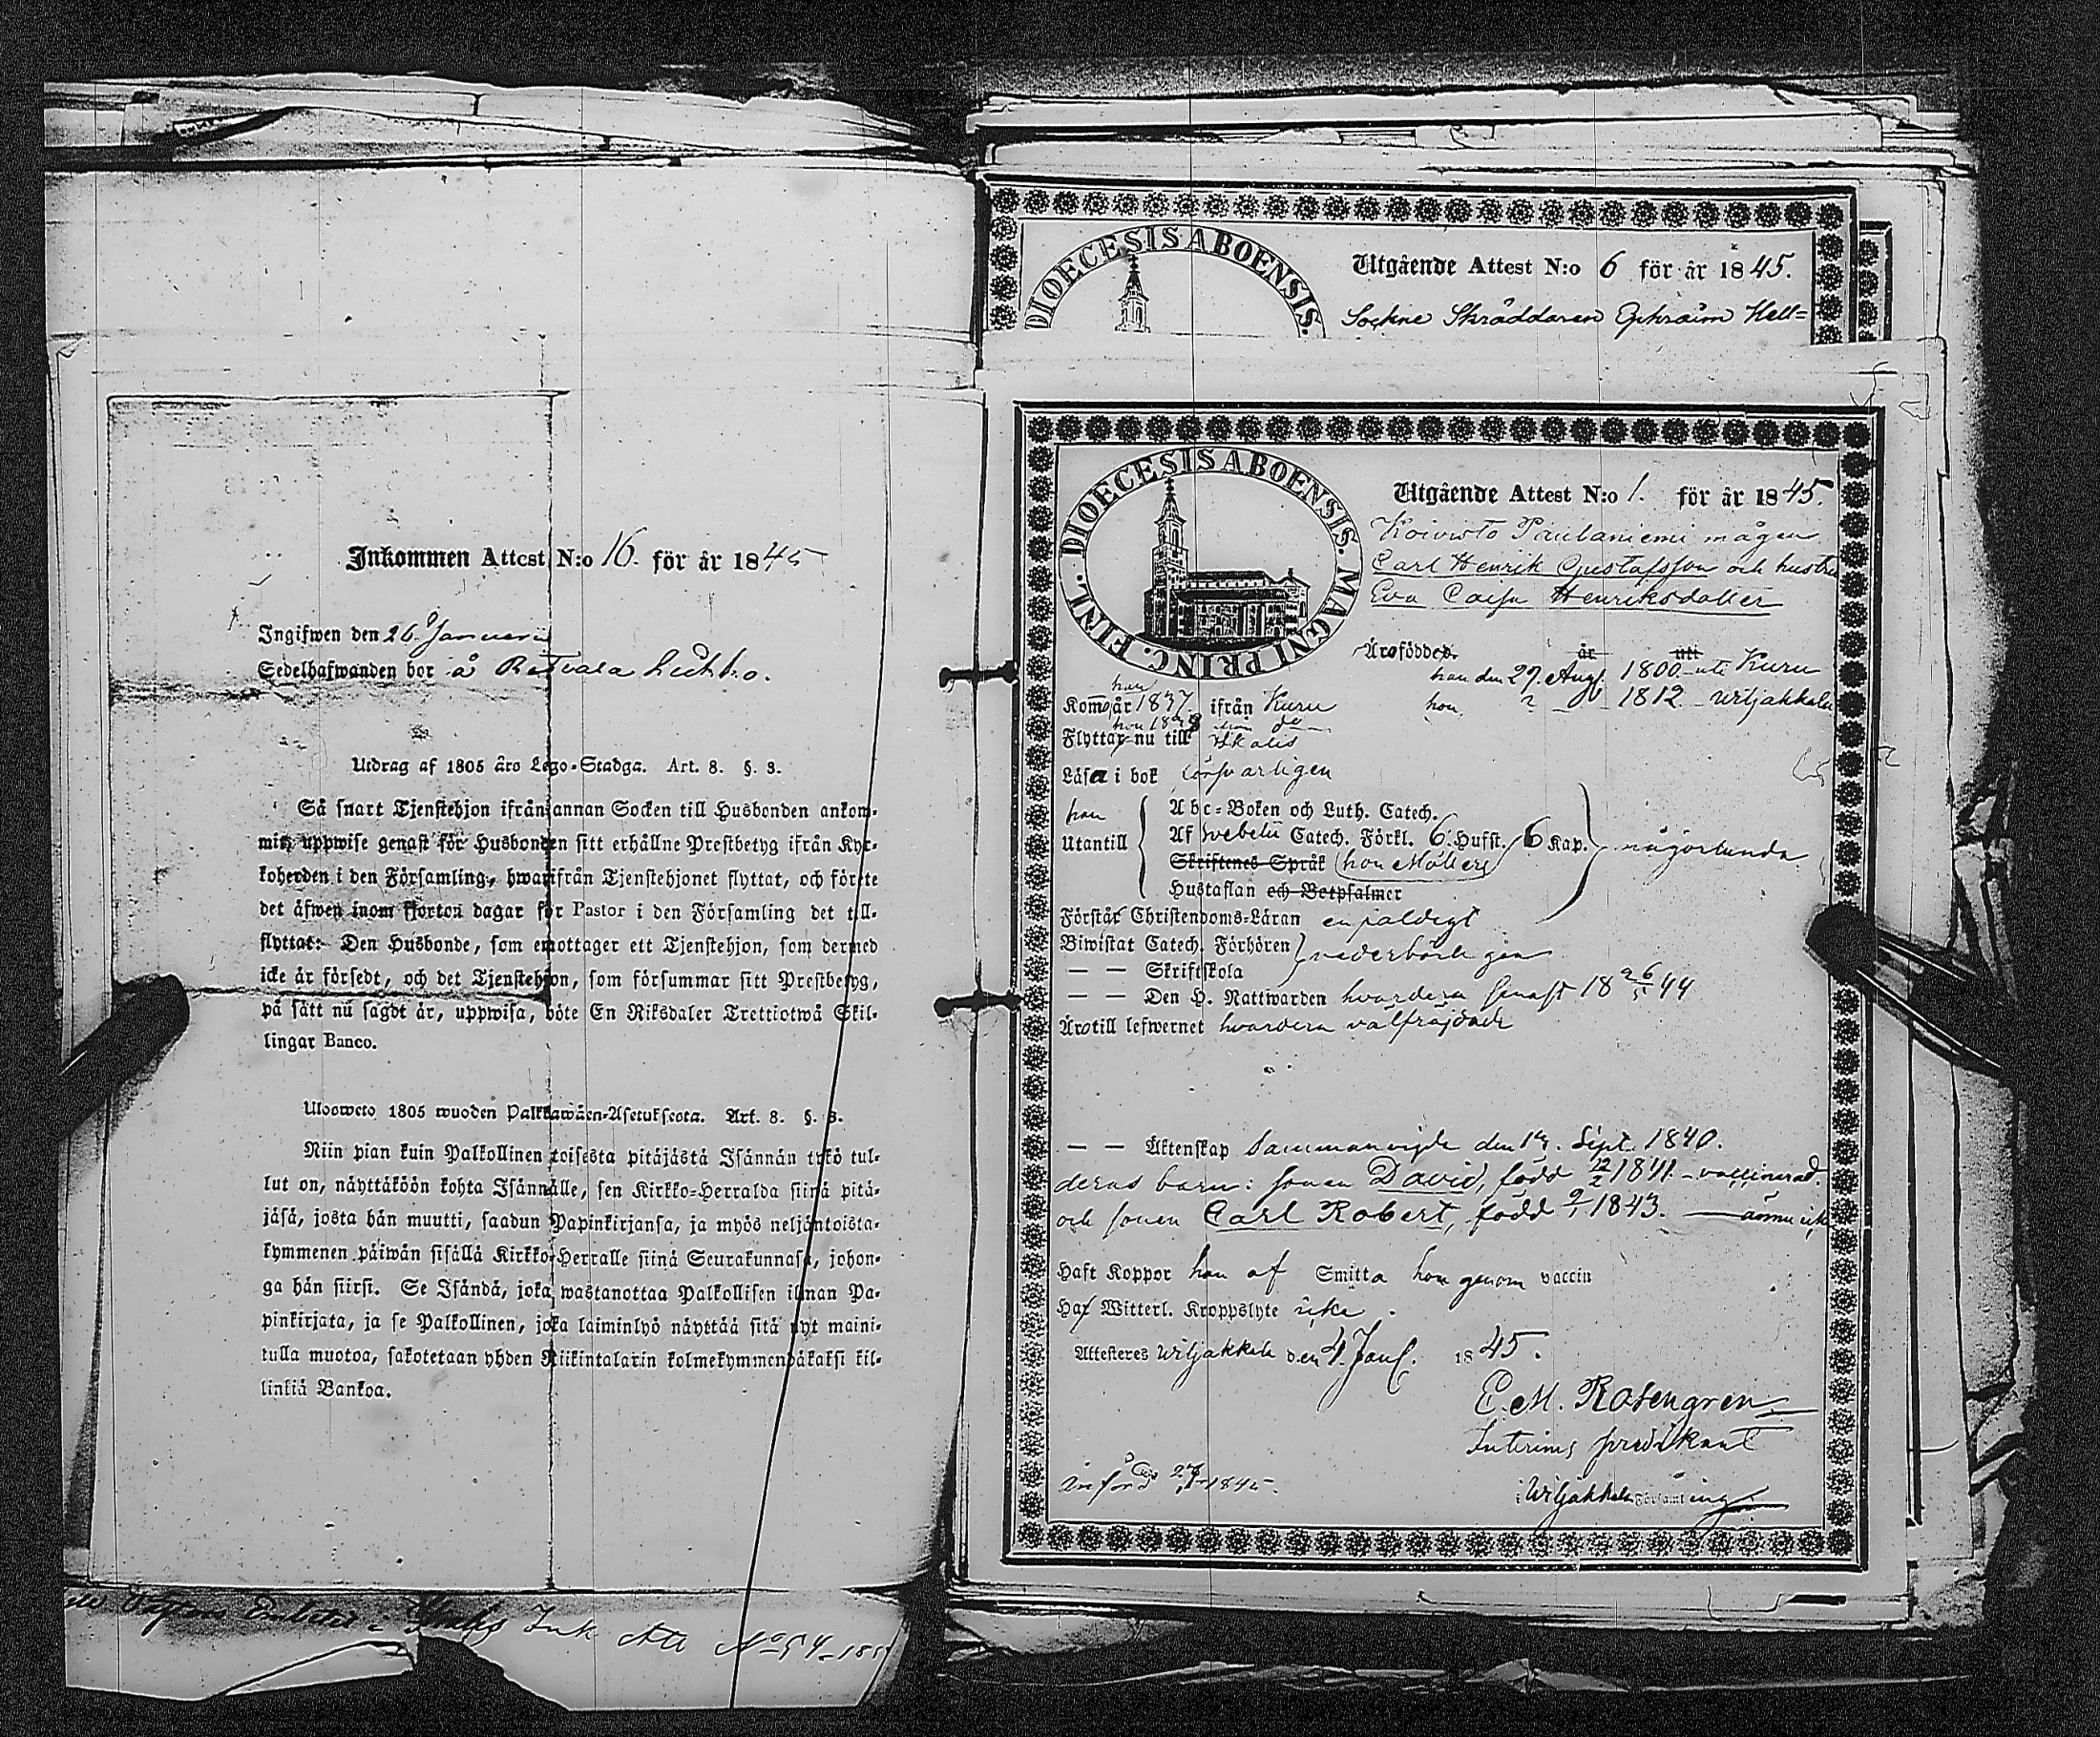 Inkommen Attest N:o 16. för år 1845
Ingifwen den 26 Januari
Sedelhafwanden bor å Retvala
Utdrag af 1805 års Lego-Stadga. Art. 8. §. 3.
Så snart Tjenstehjon ifrån annan Socken till Husbonden ankom-
mit, uppwise genast för Husbonden sitt erhållne Prestbetyg ifrån Kyr-
koherden i den Församling, hwarifrån Tjenstehjonet flyttat, och förete
det äfwen inom fjorton dagar för Pastor i den Församling det till-
flyttat: Den Husbonde, som emottager ett Tjenstehjon, som dermed
icke är försedt, och det Tjenstehjon, som försummar sitt Prestbetyg,
på sätt nu sagdt är, uppwisa, böte En Riksdaler Trettiotwå Skil-
lingar Banco.
Ulosweto 1805 wuoden Palkkawäen-Asetuksesta. Art. 8. §. 3.
Niin pian kuin Palkollinen toisesta pitäjästä Isännän tykö tul-
lut on, näyttäköön kohta Isännälle, sen Kirkko-Herralda siinä pitä-
jäsä, josta hän muutti, saadun Papinkirjansa, ja myös neljäntoista-
kymmenen päiwän sisällä Kirkko-Herralle siinä Seurakunnasa, johon-
ga hän siirsi. Se Isändä, joka wastanottaa Palkollisen ilman Pa-
pinkirjata, ja se Palkollinen, joka laiminlyö näyttää sitä nyt maini-
tulla muotoa, sakotetaan yhden Riikintalarin kolmekymmendäkaksi kil-
linkiä Bankoa.
Ink Att No 54 - 185
DIOECESIS ABOENSIS.
Utgående Attest N:o 6 för år 1845.
Sockne Skräddaren Ephraim Hell=
DIOECESIS ABOENSIS. MAGNI PRINC. FINL.
Utgående Attest N:o 1. för år 1845.
Koivisto Paulaniemi mågen
Carl Henrik Gustafsson och hustru
Eva Caisa Henriksdotter
Äro född år uti
han den 27. Aug. 1800 uti Kuru
hon ? 1812 Wiljakkala
han
Kom år 1837 ifrån Kuru
hon 1838 ifrån do
Flytta nu till Ikalis
Läsa i bok försvarligen
han
Utantill
Abc-Boken och Luth. Catech.
Af Svebelii Catech. Förkl. 6 Hufst. 6 Kap. någorlunda
Skriftenes Språk hon Möllers
Hustaflan och Botpsalmer
Förstår Christendoms-Läran enfaldigt
Biwistat Catech. Förhören
vederbörligen
— — Skriftskola
— — Den H. Nattwarden hvardera senast 18 26/5 44
Äro till lefwernet hvardera välfräjdade
— — Äktenskap Sammanvigde den Sept. 1840.
deras barn: sonen David, född 12/2 1841 - vaccinerad.
och sonen Carl Robert, född 9/1 1843. — ännu icke
Haft Koppor han af Smitta hon genom vaccin
Haf Witterl. Kroppslyte icke.
Attesteres Wiljakkala den 4. Jan. 1845.
E. M. Rosengren
Interims predikant
i Wiljakkala Församling
införd 27/1 1845.